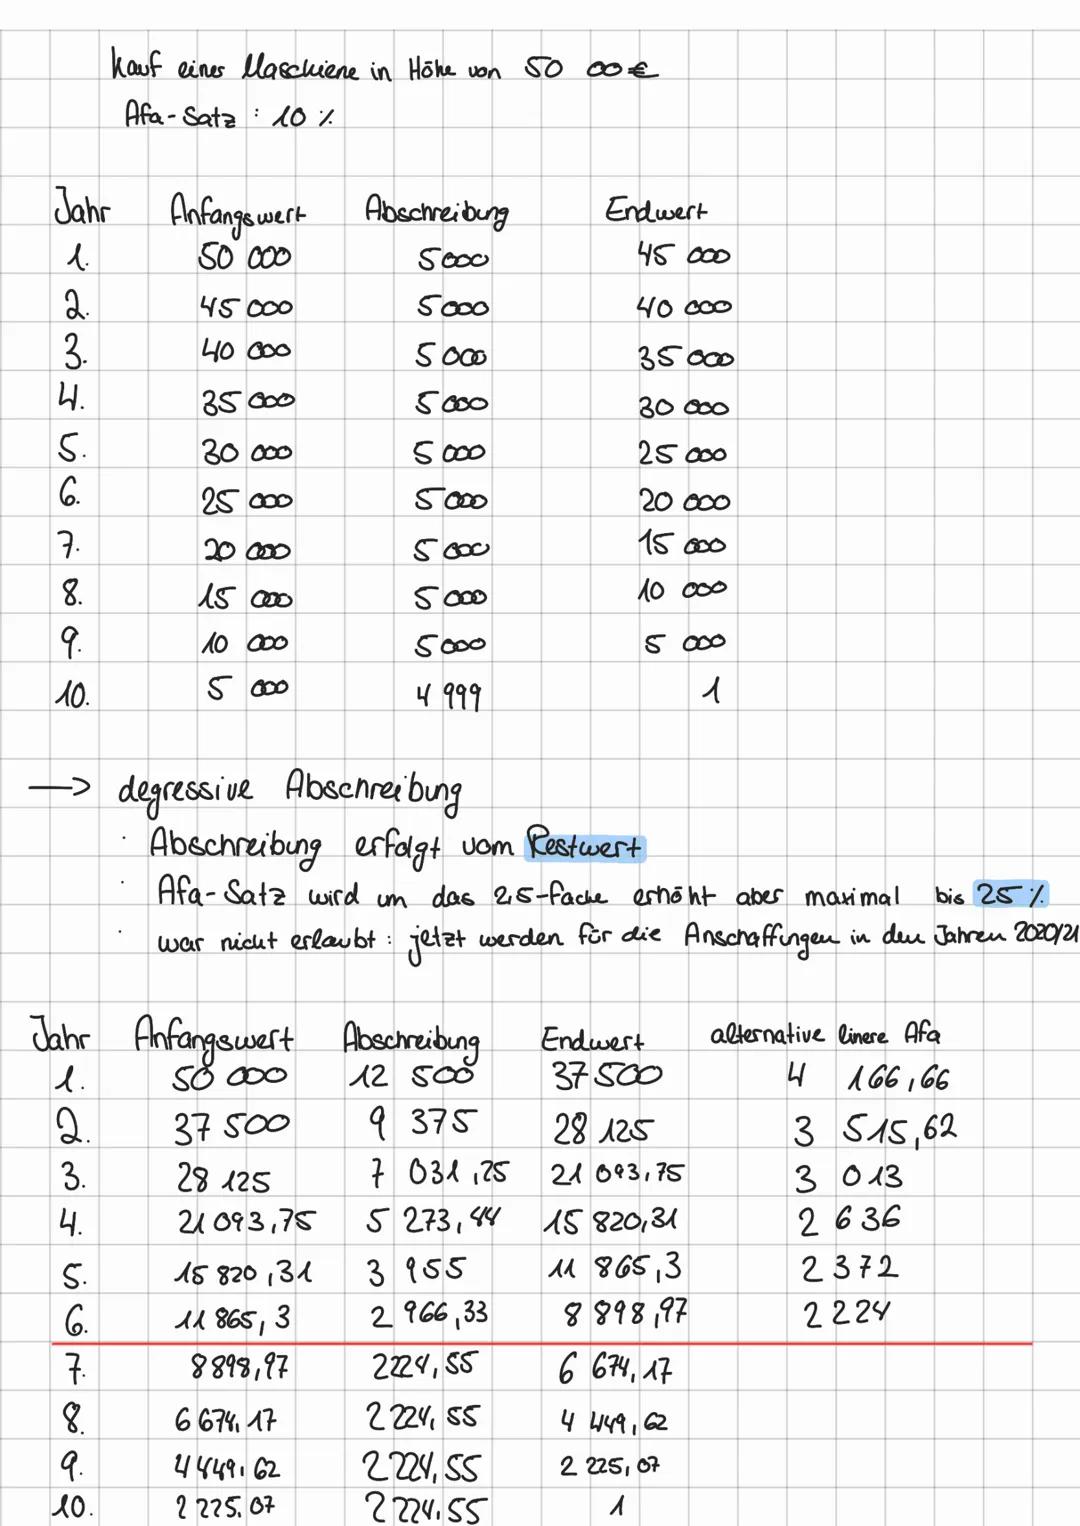 Kauf einer Maschiene in Höhe von 50 00€
Afa-Satz : 10 %
Jahr Anfangswert Abschreibung Endwert
1. 50 000 5000 45 000
2. 45 000 5000 40 000
3. 40 000 5000 35 000
4. 35 000 5000 30 000
5. 30 000 5000 25 000
6. 25 000 5000 20 000
7. 20 000 5000 15 000
8. 15 000 5000 10 000
9. 10 000 5000 5 000
10. 5 000 4 999 1
→ degressive Abschreibung
· Abschreibung erfolgt vom Restwert
· Afa-Satz wird um das 2,5-fache erhöht aber maximal bis 25 %
· war nicht erlaubt : jetzt werden für die Anschaffungen in den Jahren 2020/21
Jahr Anfangswert Abschreibung Endwert alternative linere Afa
1. 50 000 12 500 37 500 4 166,66
2. 37 500 9 375 28 125 3 515,62
3. 28 125 7 031,25 21 093,75 3 013
4. 21 093,75 5 273,44 15 820,31 2 636
5. 15 820,31 3 955 11 865,3 2 372
6. 11 865,3 2 966,33 8 898,97 2 224
7. 8898,97 2224,55 6 674,17
8. 6 674,17 2 224,55 4 449,62
9. 4 449,62 2 224,55 2 225,07
10. 2 225,07 2 224,55 1